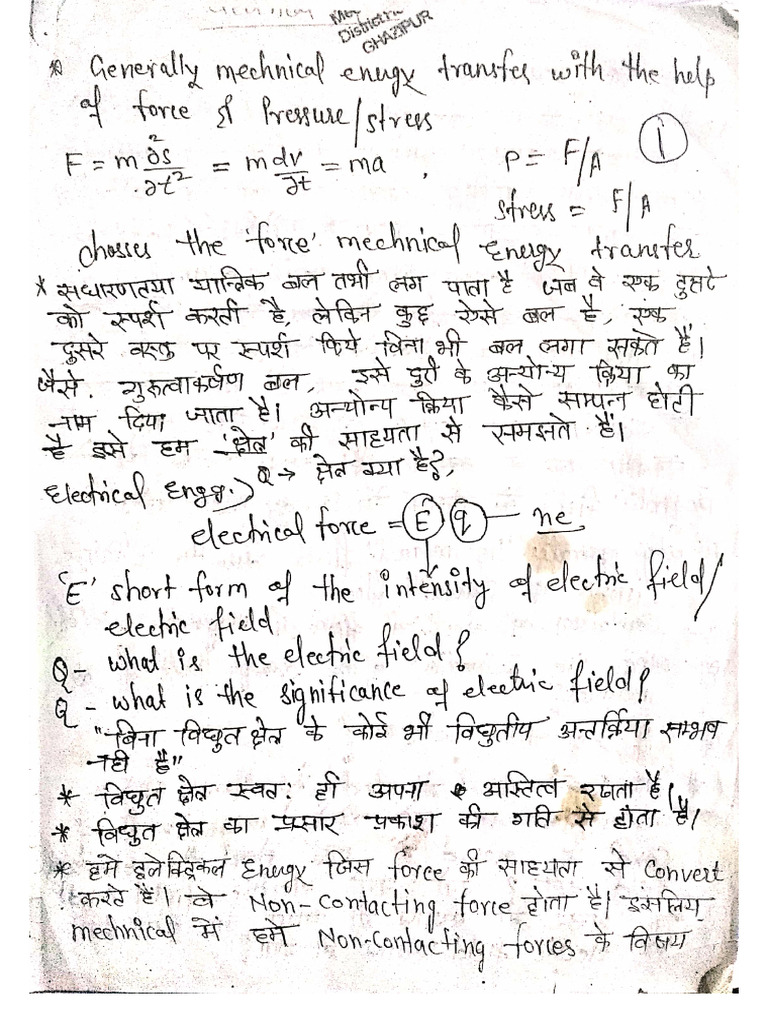 Districtric
GHAZIPUR
* Generally mechnical energy transfer with the help
of force & Pressure/stress
①
F = m ∂²s/∂t² = m dv/∂t = ma , P = F/A
stress = F/A
chosses the 'force' mechnical energy transfer
* सधारणतया यान्त्रिक बल तभी लग पाता है जब वे एक दुसरे
को स्पर्श करती है, लेकिन कुछ ऐसे बल है, एक
दुसरे वस्तु पर स्पर्श किये बिना भी बल लगा सकते हैं।
जैसे. गुरुत्वाकर्षण बल, इसे दुरी के अन्योन्य क्रिया का
नाम दिया जाता है। अन्योन्य क्रिया कैसे सम्पन्न होती
है इसे हम 'क्षेत्र' की साहयता से समझते हैं।
Q → क्षेत्र क्या है?,
Electrical Engg.)
electrical force = E q — ne
'E' short form of the intensity of electric field/
electric field
Q - what is the electric field?
Q - what is the significance of electric field?
"बिना विधुत क्षेत्र के कोई भी विधुतीय अन्तर्क्रिया सम्भव
नही है"
* विधुत क्षेत्र स्वत: ही अपना अस्तित्व रखता है।
* विधुत क्षेत्र का प्रसार प्रकाश की गति से होता है।
* हमे इलेक्ट्रिकल Energy जिस force की साहयता से Convert
करते है। वे Non-Contacting force होता है। इसलिय
mechnical में हमे Non-Contacting forces के विजय